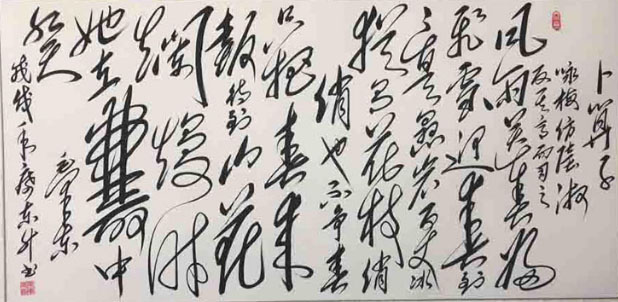 卜算子
咏梅仿陸
反其意而用之
风雨送春归
飛雪迎春到
已是悬崖百丈冰
犹有花枝俏
俏也不争春
只把春来
報待到山花
爛熳时
她在叢中
笑
毛泽东
戊戌 东升书